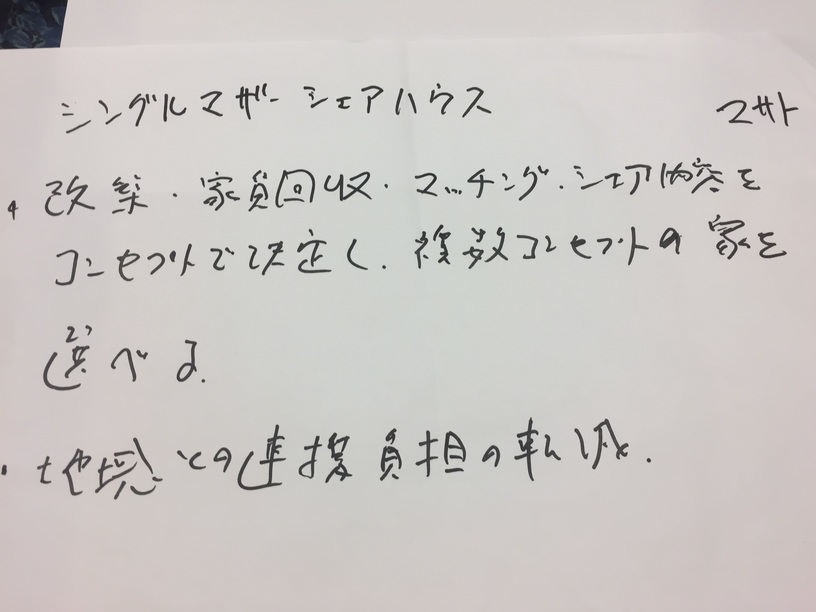 シングルマザーシェアハウス マサト
・改築・家員回収・マッチング・シェア内容を
コンセプトで決定し、複数コンセプトの家を
選べる。
・地域との連携負担の転減。